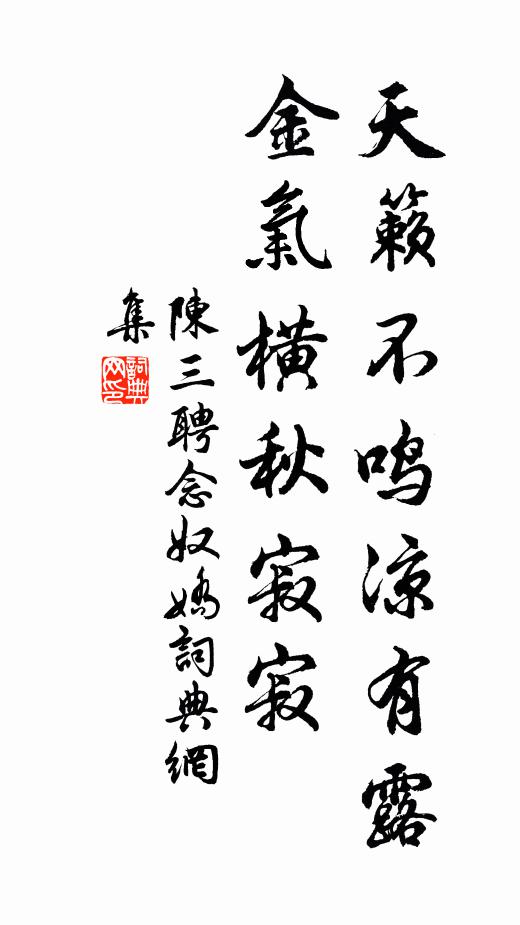 天籟不鸣涼有露
金氣橫秋寂寂
陳三聘念奴嬌詞典網
集
詞典
网印